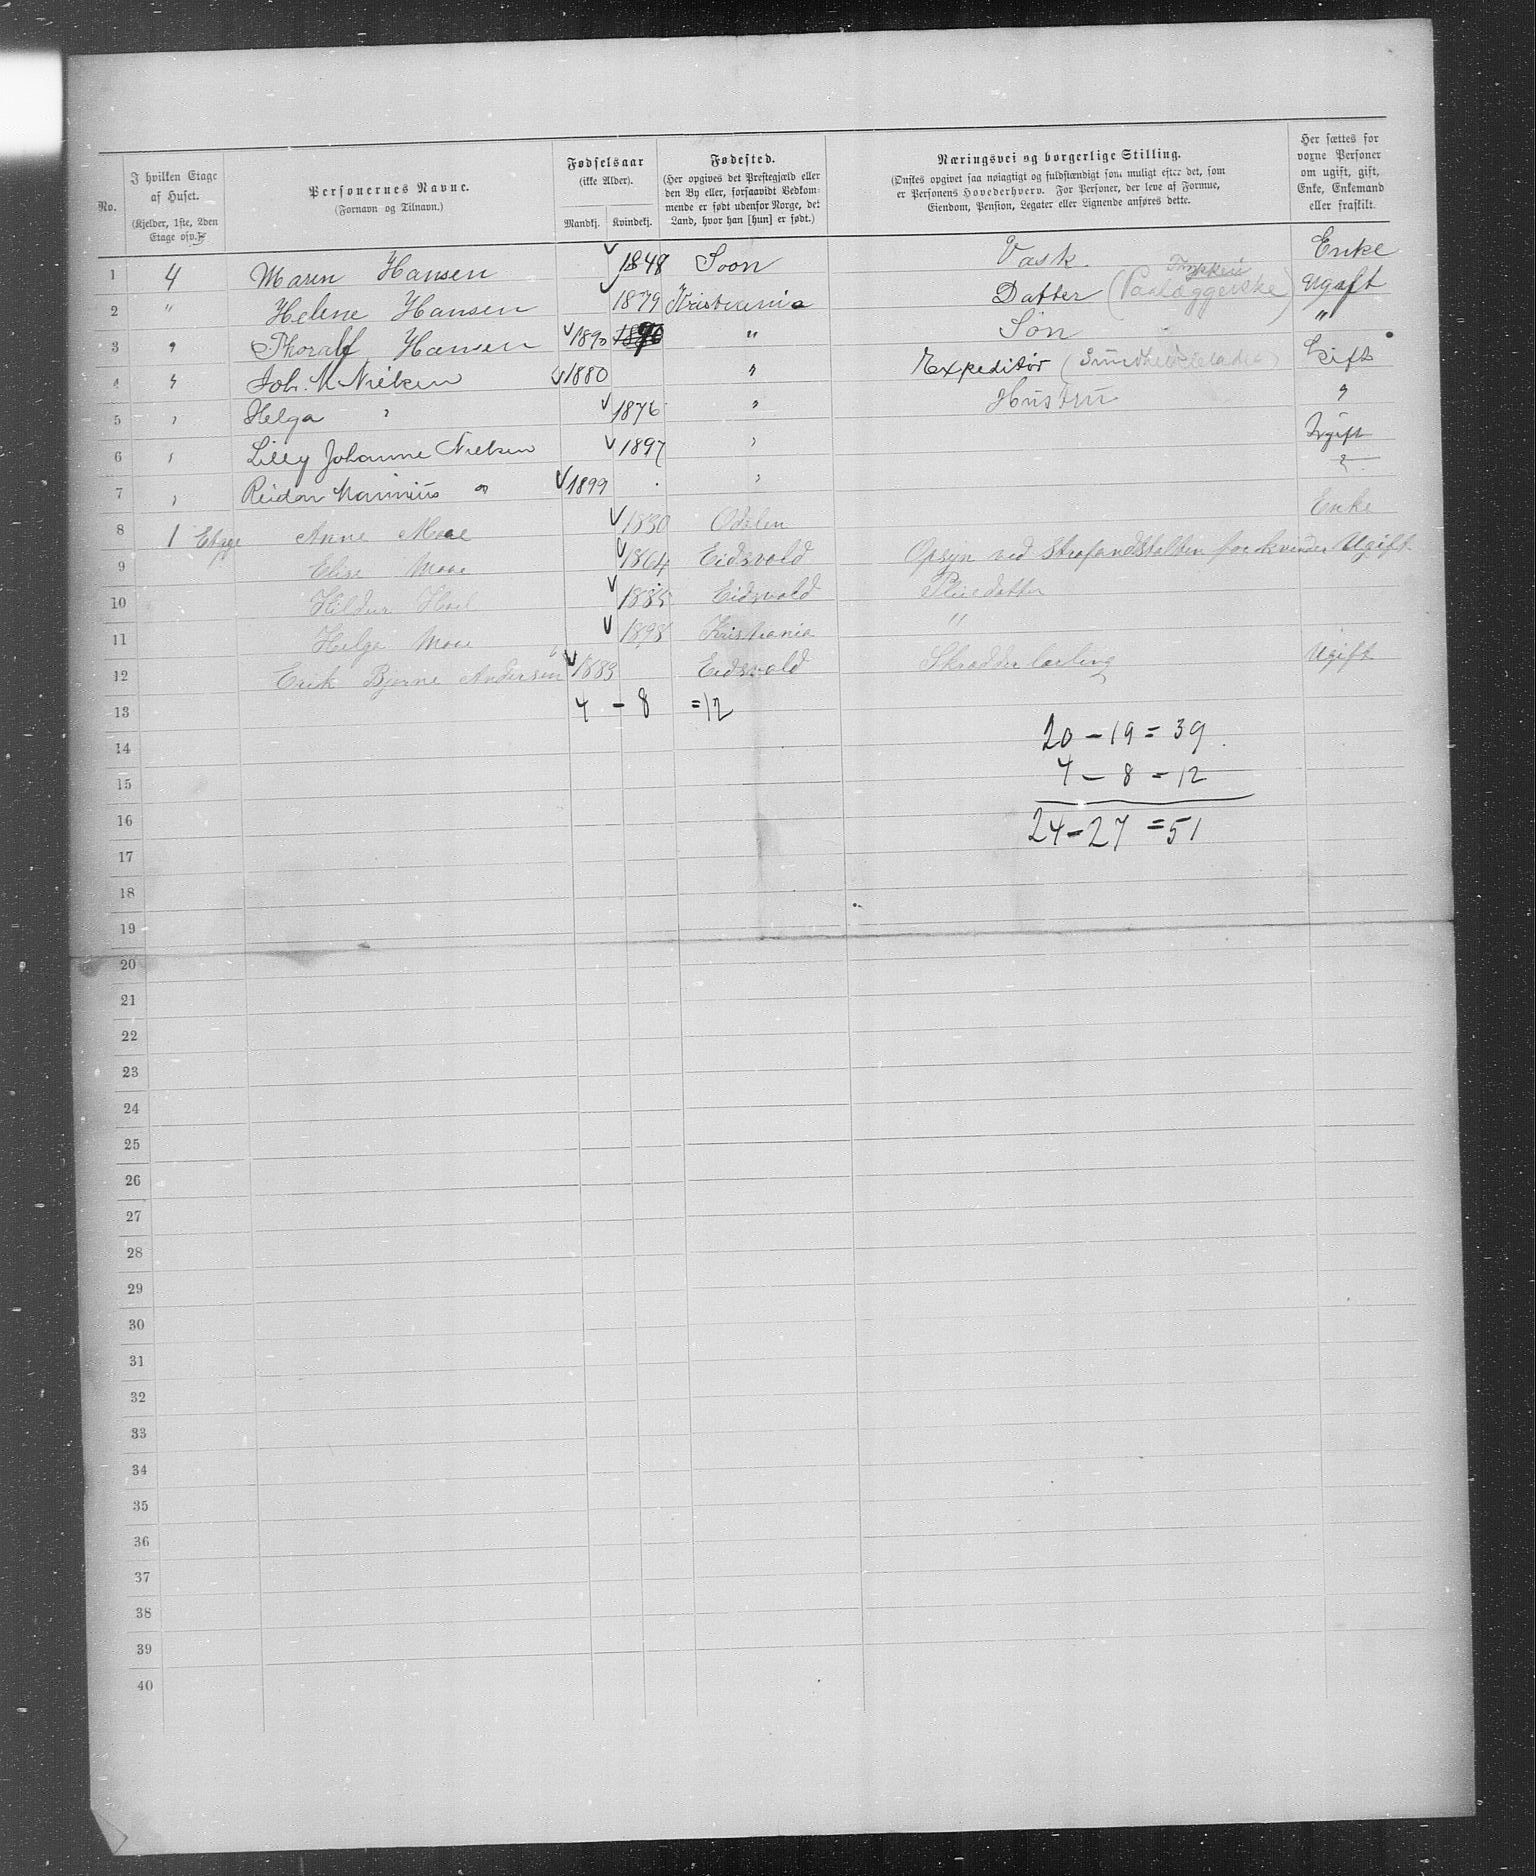 No.
I hvilken Etage
af Huset.
(Kjelder, 1ste, 2den
Etage osv.)
Personernes Navne.
(Fornavn og Tilnavn.)
Fødselsaar
(ikke Alder).
Mandkj. Kvindekj.
Fødested.
(Her opgives det Prestegjæld eller
den By eller, forsaavidt Vedkom-
mende er født udenfor Norge, det
Land, hvor han [hun] er født.)
Næringsvei og borgerlige Stilling.
(Ønskes opgivet saa nøiagtigt og fuldstændigt som muligt efter det, som
er Personens Hovederhverv. For Personer, der leve af Formue,
Eiendom, Pension, Legater eller Lignende anføres dette.
Her sættes for
voxne Personer
om ugift, gift,
Enke, Enkemand
eller fraskilt.
1 4 Maren Hansen 1848 Soon Vask. Enke
2 " Helene Hansen 1879 Kristiania Datter (Paalæggerske) Ugift
3 " Thoralf Hansen 1890 " Søn "
4 " Joh. M Nielsen 1880 " Expeditør Gift
5 " Helga " 1876 " Hustru "
6 " Lilly Johanne Nielsen 1897 " Ugift
7 " Reidar " 1899 "
8 1 Etage Anne Moe 1830 Odalen Enke
9 Elise Moe 1864 Eidsvold Opsyn ved Strafanstalten for kvinder Ugift
10 Hildur 1885 Eidsvold Pleiedatter
11 Helga Moe 1898 Kristiania "
12 Erik Bjarne Andersen 1883 Eidsvold Skrædderlærling Ugift
13 4 – 8 = 12
14 20 – 19 = 39
15 4 – 8 = 12
16 24 – 27 = 51
17
18
19
20
21
22
23
24
25
26
27
28
29
30
31
32
33
34
35
36
37
38
39
40